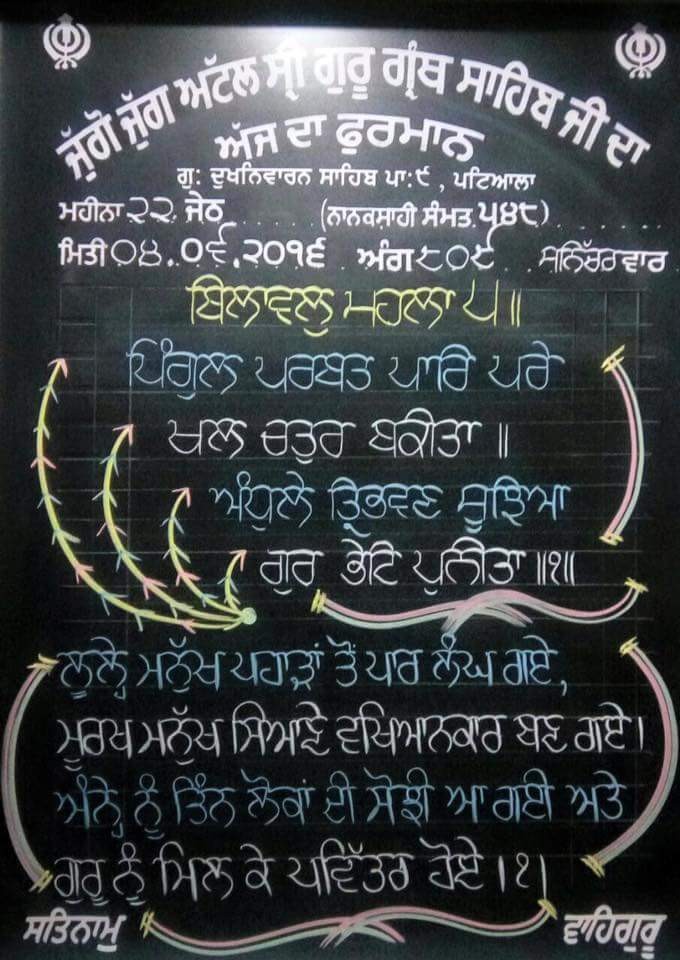 ਜੁੱਗੋ ਜੁੱਗ ਅਟੱਲ ਸ੍ਰੀ ਗੁਰੂ ਗ੍ਰੰਥ ਸਾਹਿਬ ਜੀ ਦਾ
ਅੱਜ ਦਾ ਫੁਰਮਾਨ
ਗੁ: ਦੁਖਨਿਵਾਰਨ ਸਾਹਿਬ ਪਾ:੯ , ਪਟਿਆਲਾ
ਮਹੀਨਾ ੨੨ ਜੇਠ (ਨਾਨਕਸ਼ਾਹੀ ਸੰਮਤ ੫੪੮)
ਮਿਤੀ ੦੪.੦੬.੨੦੧੬ ਅੰਗ ੮੦੯ ਸਨਿੱਚਰਵਾਰ
ਬਿਲਾਵਲੁ ਮਹਲਾ ੫॥
ਪਿੰਗੁਲ ਪਰਬਤ ਪਾਰਿ ਪਰੇ
ਖਲ ਚਤੁਰ ਬਕੀਤਾ ॥
ਅੰਧੁਲੇ ਤ੍ਰਿਭਵਣ ਸੂਝਿਆ
ਗੁਰ ਭੇਟਿ ਪੁਨੀਤਾ ॥੧॥
ਲੂਲ੍ਹੇ ਮਨੁੱਖ ਪਹਾੜਾਂ ਤੋਂ ਪਾਰ ਲੰਘ ਗਏ,
ਮੂਰਖ ਮਨੁੱਖ ਸਿਆਣੇ ਵਖਿਆਨਕਾਰ ਬਣ ਗਏ।
ਅੰਨ੍ਹੇ ਨੂੰ ਤਿੰਨ ਲੋਕਾਂ ਦੀ ਸੋਝੀ ਆ ਗਈ ਅਤੇ
ਗੁਰੂ ਨੂੰ ਮਿਲ ਕੇ ਪਵਿੱਤਰ ਹੋਏ।੧।
ਸਤਿਨਾਮੁ ਵਾਹਿਗੁਰੂ